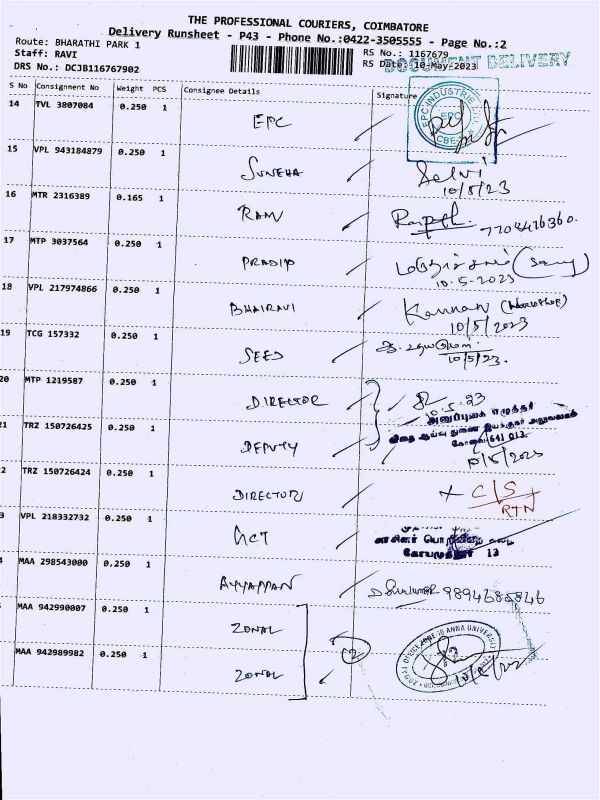 THE PROFESSIONAL COURIERS, COIMBATORE
Delivery Runsheet - P43 - Phone No.:0422-3505555 - Page No.:2
Route: BHARATHI PARK 1 RS No.: 1167679
Staff: RAVI RS Date: 10-May-2023 DOCUMENT DELIVERY
DRS No.: DCJB116767902
S No Consignment No Weight PCS Consignee Details Signature
14 TVL 3807084 0.250 1 EPC EPC INDUSTRIE EPC CBE
15 VPL 943184879 0.250 1 SUNEHA Selvi
10/5/23
16 MTR 2316389 0.165 1 RAM 7708426360.
17 MTP 3037564 0.250 1 PRADIP
10.5-2023
18 VPL 217974866 0.250 1 BHAIRAVI Kannan
10/5/2023
19 TCG 157332 0.250 1 SEED
10/5/23.
20 MTP 1219587 0.250 1 DIRECTOR
10.5.23
அனுப்புகை எழுத்தர்
விதை ஆய்வு துணை இயக்குநர் அலுவலகம்
கோவை-641 013.
21 TRZ 150726425 0.250 1 DEPUTY
10/5/2023
2 TRZ 150726424 0.250 1 DIRECTOR C/S
RTN
3 VPL 218332732 0.250 1 GCT
கோயமுத்தூர் 13
4 MAA 298543000 0.250 1 AYYAPPAN 9894685846
MAA 942990007 0.250 1 ZONAL
ANNA UNIVERSITY
MAA 942989982 0.250 1 ZONAL